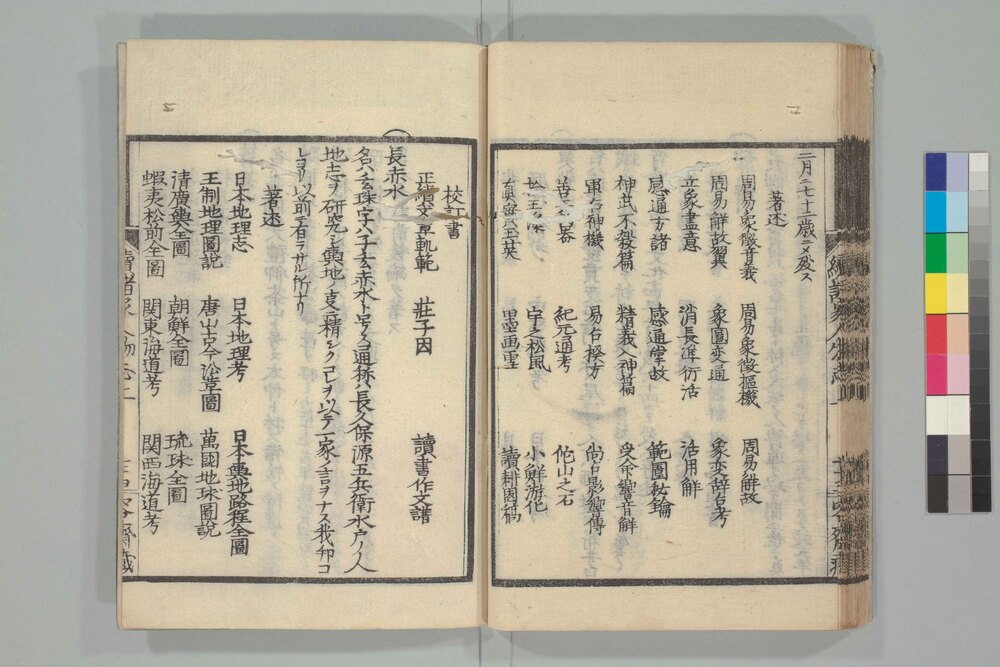 二月ニ七十二歳ニメ歿ス
著述
周易象徴音義　周易象徴樞機　周易解故
周易解故翼　象圖変通　象変辞占考
立象盡意　消長渾衍活　活用觧
感通才諸　感通掌故　範圍秘鑰
神武不殺篇　精義入神篇　受命響音解
軍占神機　易占揆方　尚占影響傳
紀元通考　佗山之石
松風　小鮮游化
墨画雪　讀耕園稿
校訂書
正續文章軌範　荘子因　讀書作文譜
長赤水
名ハ玄珠字ハ子玄赤水ト号ス通称ハ長久保源五兵衛水戸ノ人
地志ヲ研究シ輿地ノ支ニ精シクコレヲ以テ一家ノ言ヲナス我邦コ
レヨリ以前ニ有ラサル所ナリ
著述
日本地理志　日本地理考　日本輿地路程全圖
王制地理圖説　唐山古今沿革圖　萬國地球圖説
清廣輿全圖　朝鮮全圖　琉球全圖
蝦夷松前全圖　関東海道考　関西海道考